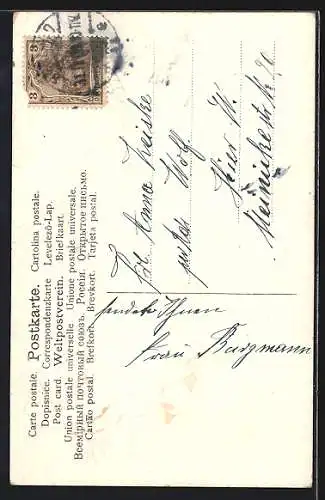 Carte postale. Postkarte. Cartolina postale.
Dopisnice. Correspondenzkarte Levelező-Lap.
Post card. Weltpostverein. Briefkaart.
Union postale universelle. Unione postale universale.
Всемірный почтовый союзъ. Россія. Открытое письмо.
Cartão postal. Brefkort. Brevkort. Tarjeta postal.
3 3
Frl. Anna
Wolf
Hier W.
20
sendet Ihnen
Frau Bergmann